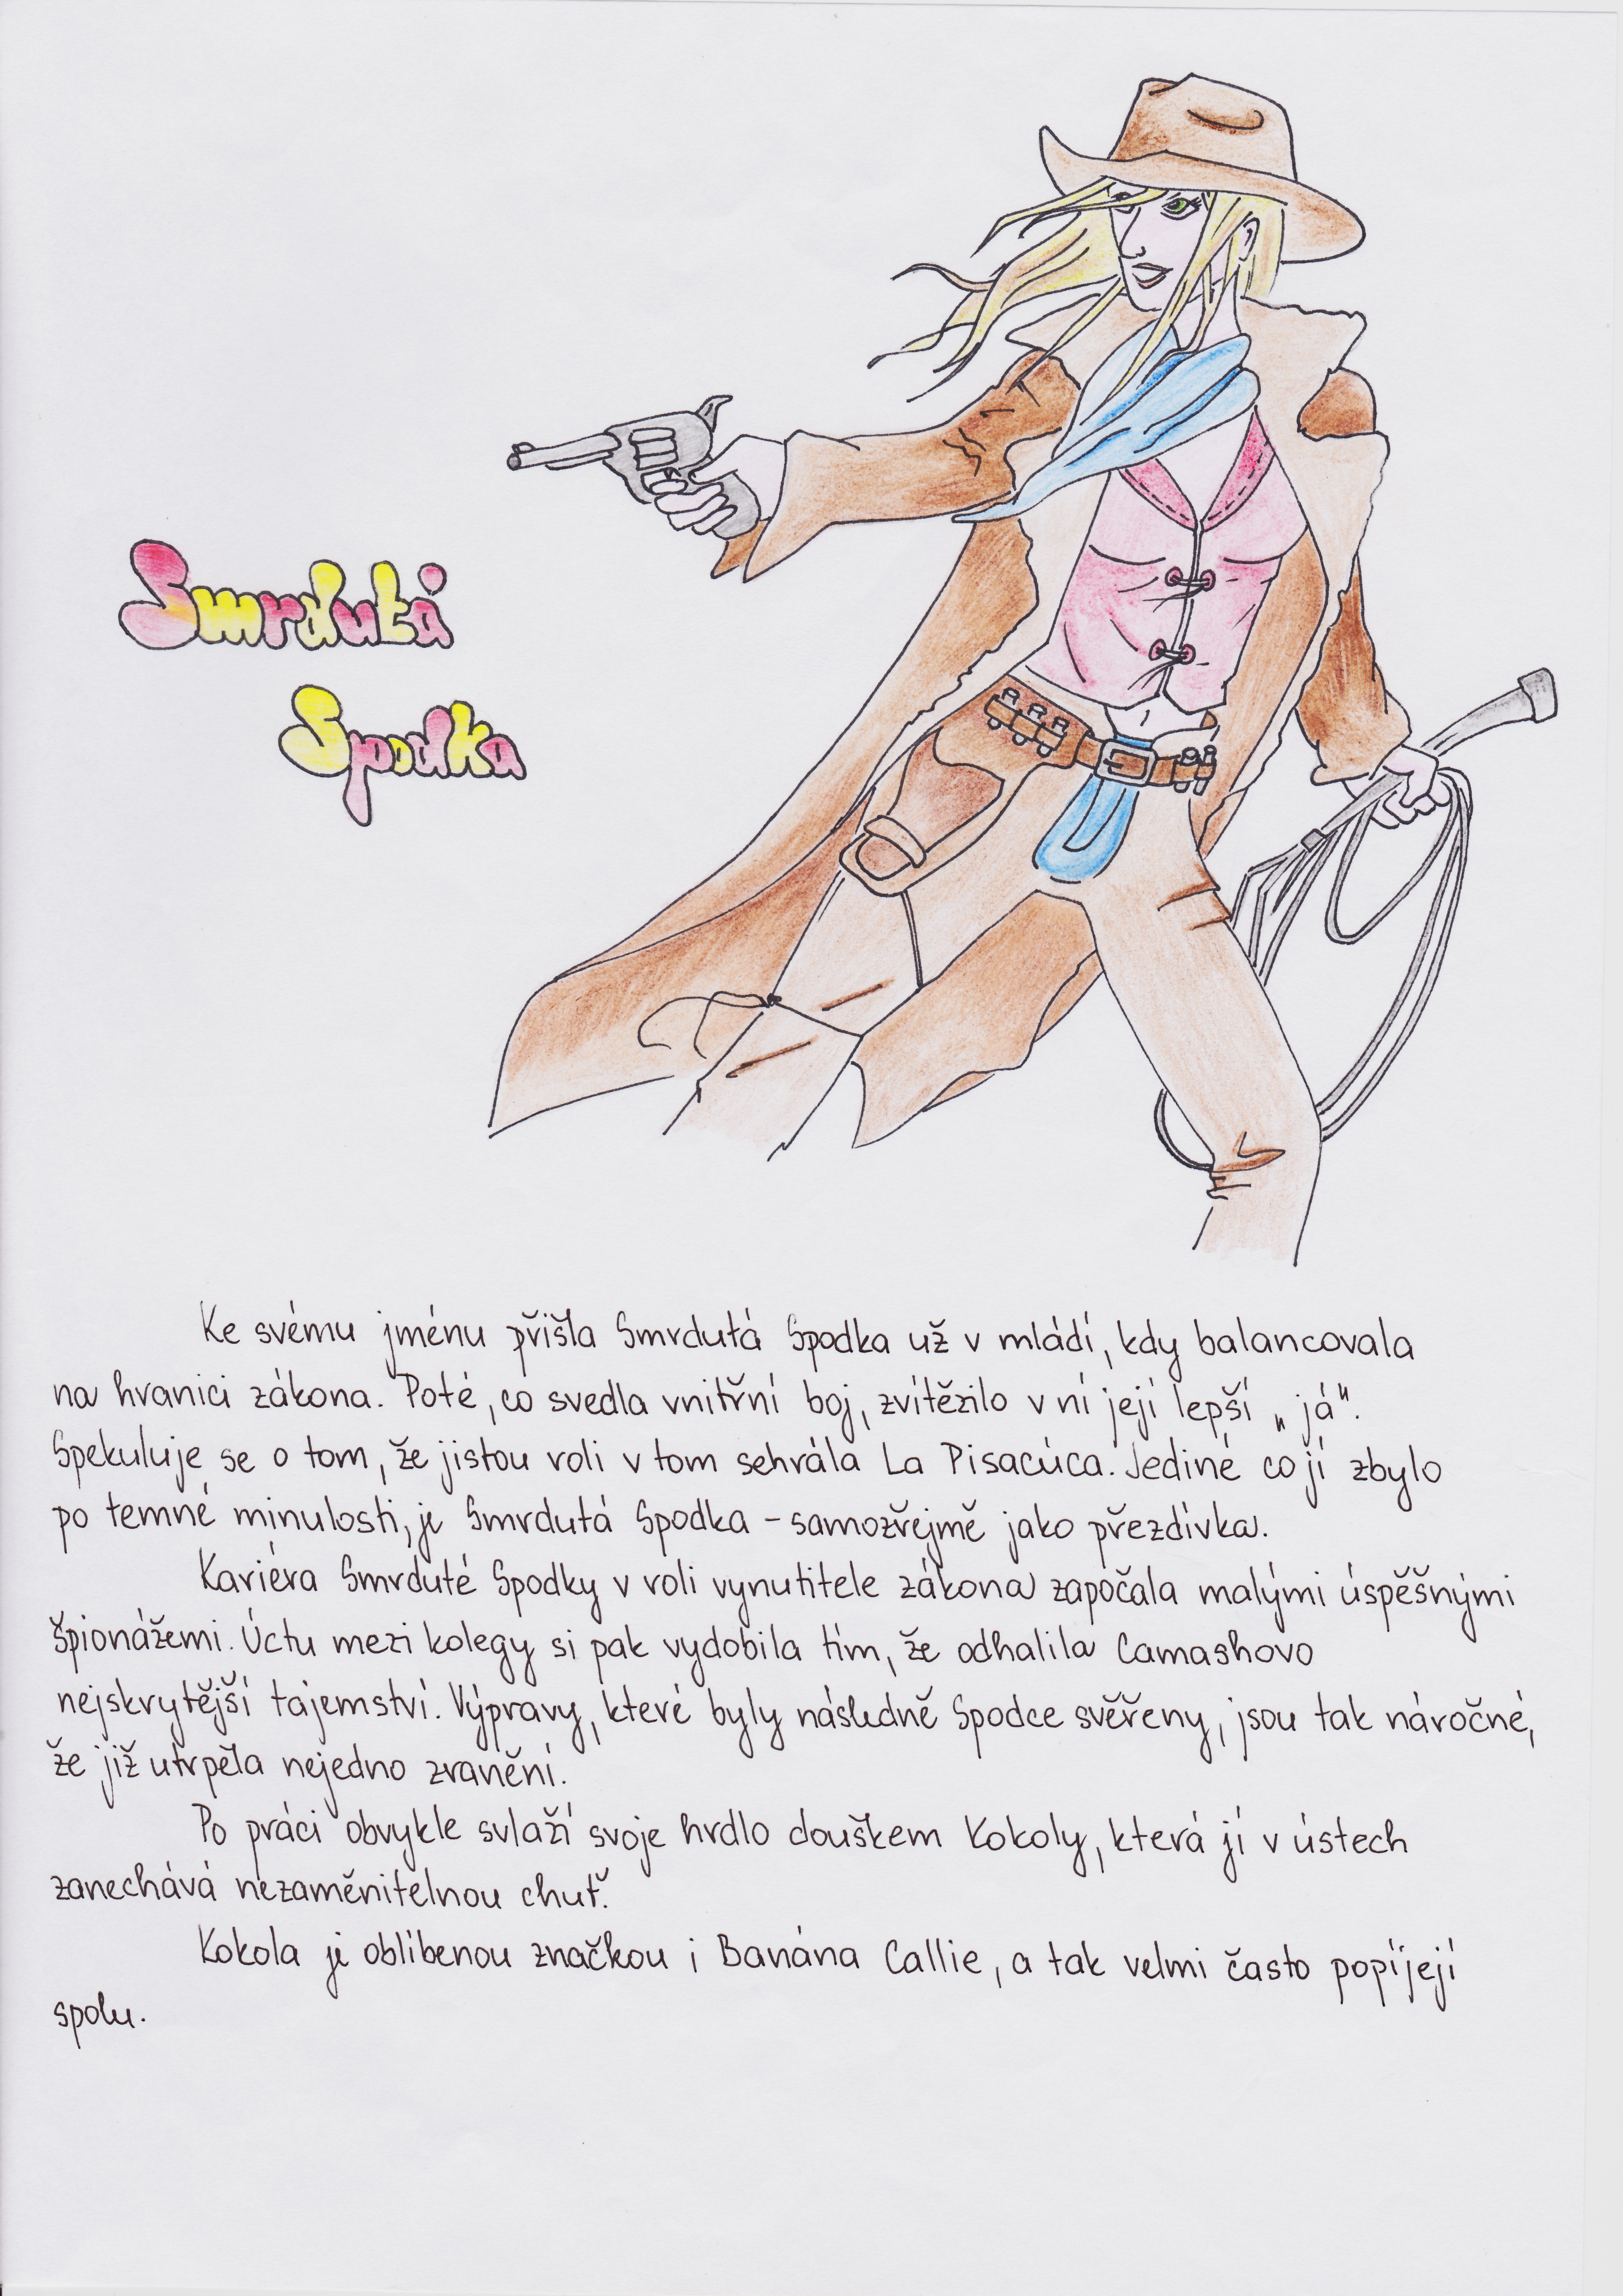 Smrdutá
Spodka
Ke svému jménu přišla Smrdutá Spodka už v mládí, kdy balancovala
na hranici zákona. Poté, co svedla vnitřní boj, zvítězilo v ní její lepší „já“.
Spekuluje se o tom, že jistou roli v tom sehrála La Pisacúca. Jediné co jí zbylo
po temné minulosti, je Smrdutá Spodka - samozřejmě jako přezdívka.
Kariéra Smrduté Spodky v roli vynutitele zákona započala malými úspěšnými
špionážemi. Úctu mezi kolegy si pak vydobila tím, že odhalila Camashovo
nejskrytější tajemství. Výpravy, které byly následně Spodce svěřeny, jsou tak náročné,
že již utrpěla nejedno zranění.
Po práci obvykle svlaží svoje hrdlo douškem Kokoly, která jí v ústech
zanechává nezaměnitelnou chuť.
Kokola je oblíbenou značkou i Banána Callie, a tak velmi často popíjejí
spolu.